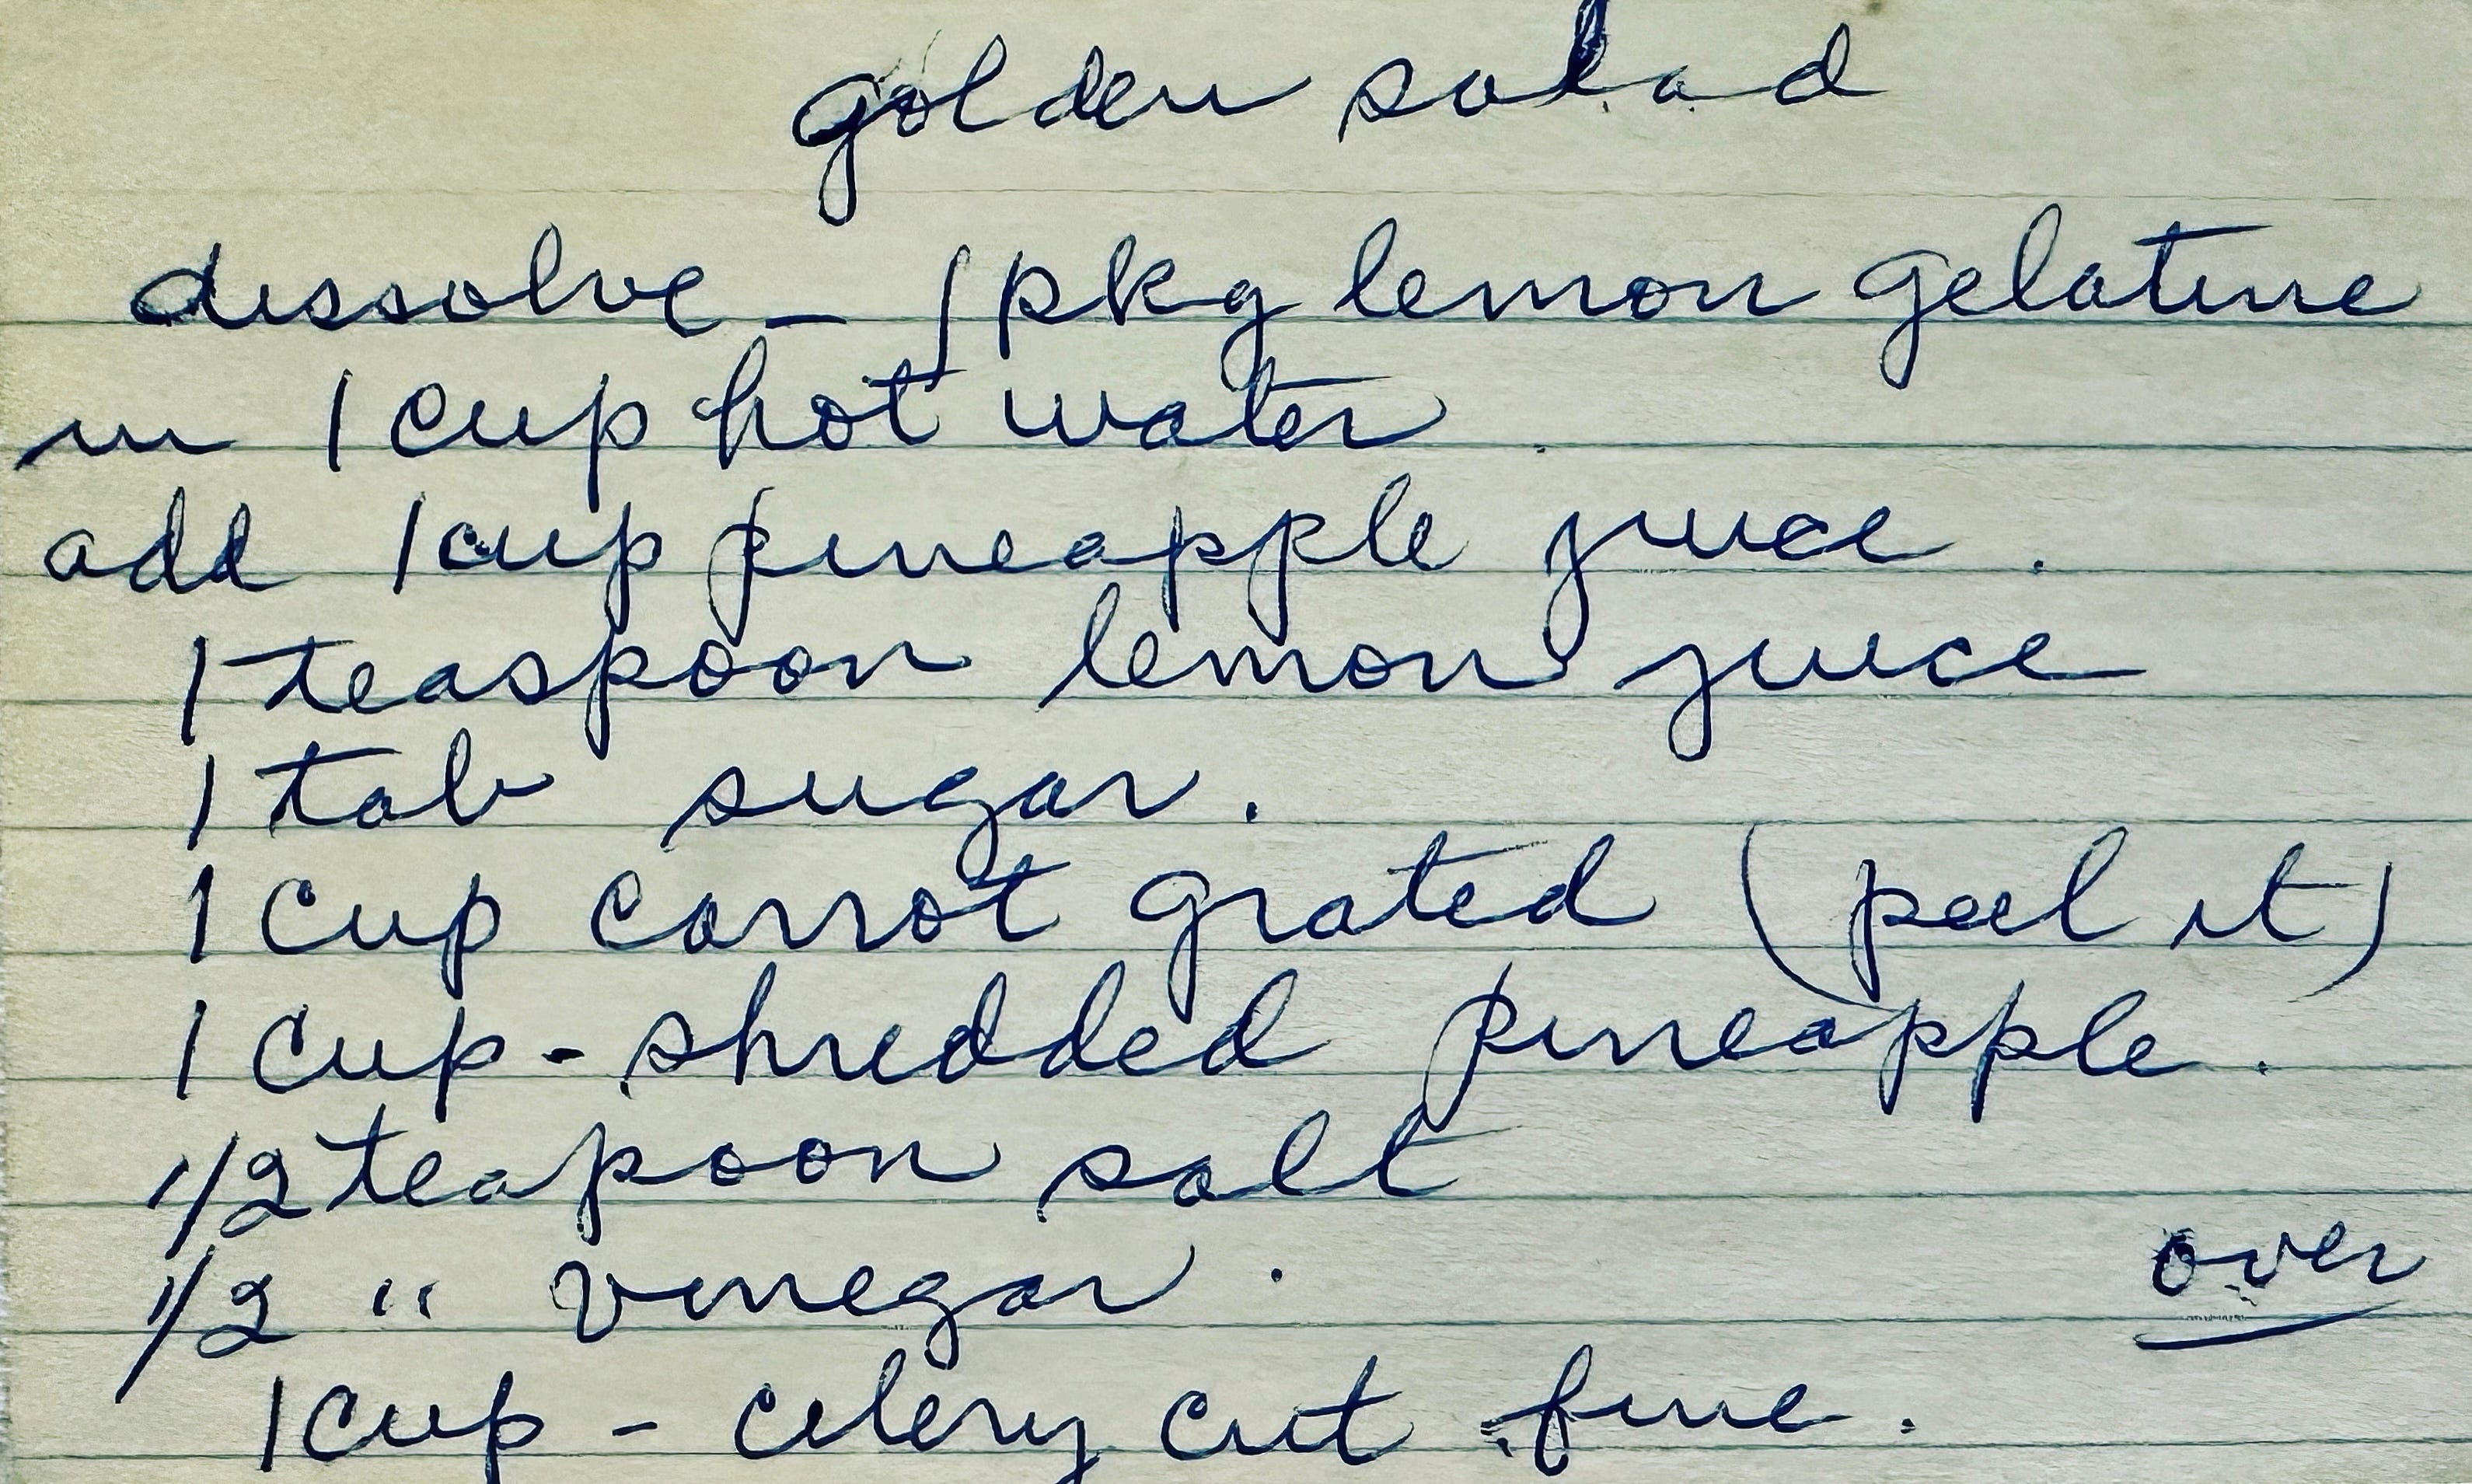 golden salad
dissolve - 1 pkg lemon gelatine
in 1 cup hot water
add 1 cup pineapple juice.
1 teaspoon lemon juice
1 tab sugar.
1 cup carrot grated (peel it)
1 cup - shredded pineapple.
1/2 teapoon salt
1/2 " vinegar.
over
1 cup - celery cut fine.